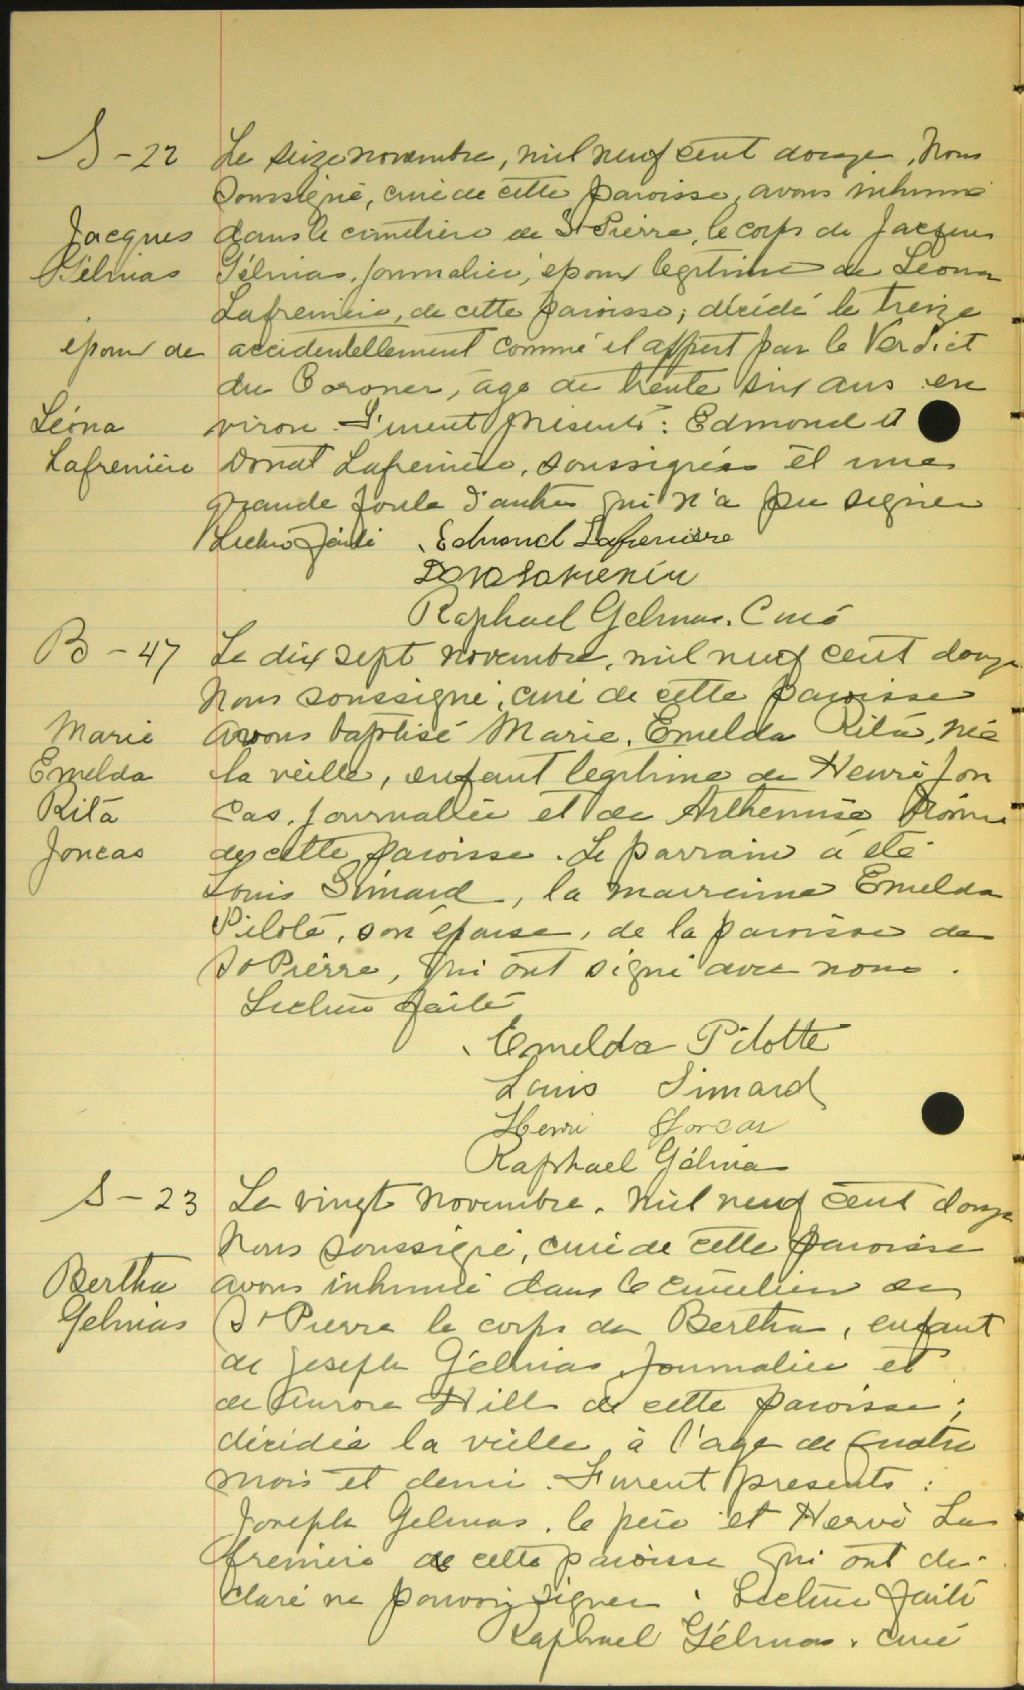 S - 22
Jacques
Gélinas
époux de
Léona
Lafrenière
Le seize novembre, mil neuf cent douze, Nous
soussigné, curé de cette paroisse, avons inhumé
dans le cimetière de St Pierre, le corps de Jacques
Gélinas, journalier, époux légitime de Léona
Lafrenière, de cette paroisse, décédé le treize
accidentellement comme il appert par le Verdict
du Coroner, âgé de trente six ans en
viron. Furent présents: Edmond et
Donat Lafrenière, soussignés et une
grande foule d'autres qui n'a pu signer
Lecture faite Edmond Lafrenière
Raphael Gelinas. Curé
B - 47
Marie
Emelda
Rita
Joncas
Le dix sept novembre, mil neuf cent douze
Nous soussigné, curé de cette paroisse
avons baptisé Marie, Emelda Rita, née
la veille, enfant légitime de Henri Jon
cas, journalier et de Arthemise
de cette paroisse. Le parrain a été
Louis Simard, la marraine Emelda
Pilote, son épouse, de la paroisse de
St Pierre, qui ont signé avec nous.
Lecture faite
Emelda Pilotte
Louis Simard
Henri Joncas
Raphael Gélinas
S - 23
Bertha
Gelinas
Le vingt novembre, mil neuf cent douze
Nous soussigné, curé de cette paroisse
avons inhumé dans le cimetière de
St Pierre le corps de Bertha, enfant
de Joseph Gélinas, journalier et
de Aurore Hill de cette paroisse;
décédée la veille, à l'age de quatre
mois et demi. Furent présents:
Joseph Gelinas, le père et Hervé La
frenière de cette paroisse qui ont dé-
claré ne pouvoir signer. Lecture faite
Raphael Gélinas. curé